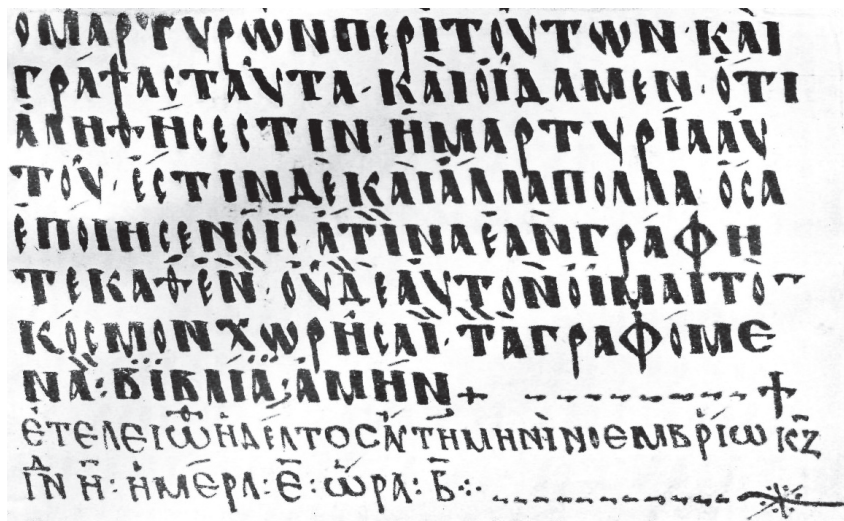 ὉΜΑΡΤΥΡῶΝΠΕΡῚΤΟΎΤωΝ· ΚΑῚ
ΓΡΆΨΑϹΤΑΥ͂ΤΑ· ΚΑῚΟἼΔΑΜΕΝ· ὍΤΙ
ἈΛΗΘΉϹΕϹΤΙΝ· ἩΜΑΡΤΥΡΊΑΑΥ
ΤΟΥ͂· ἜϹΤΙΝΔΕΚΑῚἌΛΛΑΠΟΛΛΑ· ὍϹΑ
ἘΠΟΊΗϹΕΝΟΙ̅Ϲ̅· ἍΤΙΝΑΕΑΝΓΡΆΦΗ
ΤΕΚΑΘΕΝ· ΟΥΔΕΑΥΤΟΝΟΙΜΑΙΤΟ̅
ΚΌϹΜΟΝΧωΡΗϹΑΙ· ΤΑΓΡΑΦΌΜΕ
ΝΑ: ΒΙΒΛΊΑ: ἈΜΉΝ +
ἘΤΕΛΕΙώΘΗΔΈΛΤΟϹΑΥΤΗΜΗΝῚΝΟΕΜΒΡΊω ΚΖ̅
ἸΝΔ Η̅: ἩΜΈΡΑ: Ε̅: ὭΡΑ: Β̅ :·